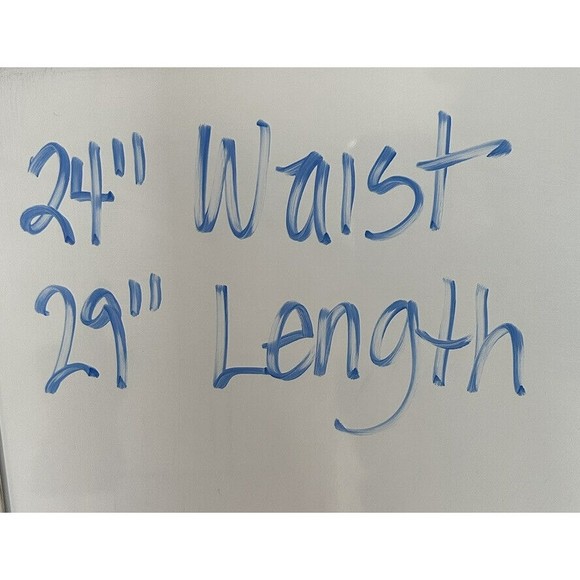 24" Waist
29" Length